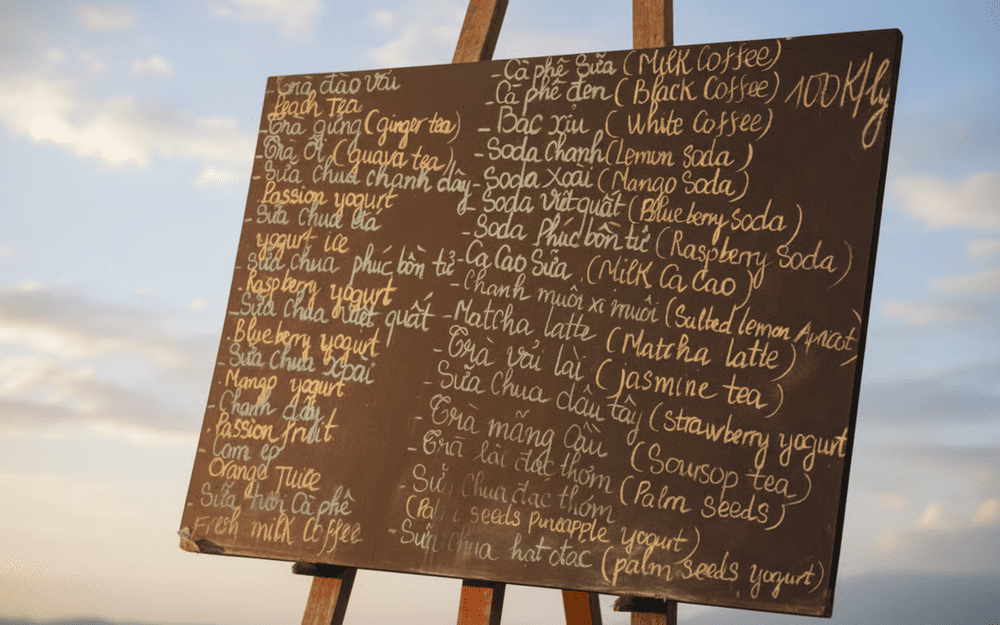 - Trà đào vải
Peach Tea
- Trà gừng (ginger tea)
- Trà ổi (guava tea)
- Sữa chua chanh dây
Passion yogurt
- Sữa chua đá
yogurt ice
- Sữa chua phúc bồn tử
Raspberry yogurt
- Sữa chua việt quất
- Blueberry yogurt
- Sữa chua xoài
- Mango yogurt
- Chanh dây
- Passion fruit
- Cam ép
Orange Juice
- Sữa tươi cà phê
- Fresh milk Coffee
- Cà phê Sữa (Milk Coffee)
- Cà phê đen (Black Coffee)
- Bạc xỉu (White Coffee)
- Soda Chanh (Lemon Soda)
- Soda Xoài (Mango Soda)
- Soda Việt quất (Blueberry soda)
Soda Phúc bồn tử (Raspberry Soda)
- Ca Cao Sữa (Milk Ca Cao)
- Chanh muối xí muội (Salted lemon Apricot)
- Matcha latte (Matcha latte)
- Trà vải lài (Jasmine tea)
- Sữa chua dâu tây (Strawberry yogurt
- Trà mãng Cầu (Soursop tea)
- Trà lài đác thơm (Palm Seeds)
Sữa chua đác thơm
(Palm seeds Pineapple yogurt)
- Sữa chua hạt đác (palm seeds yogurt)
100K/ly